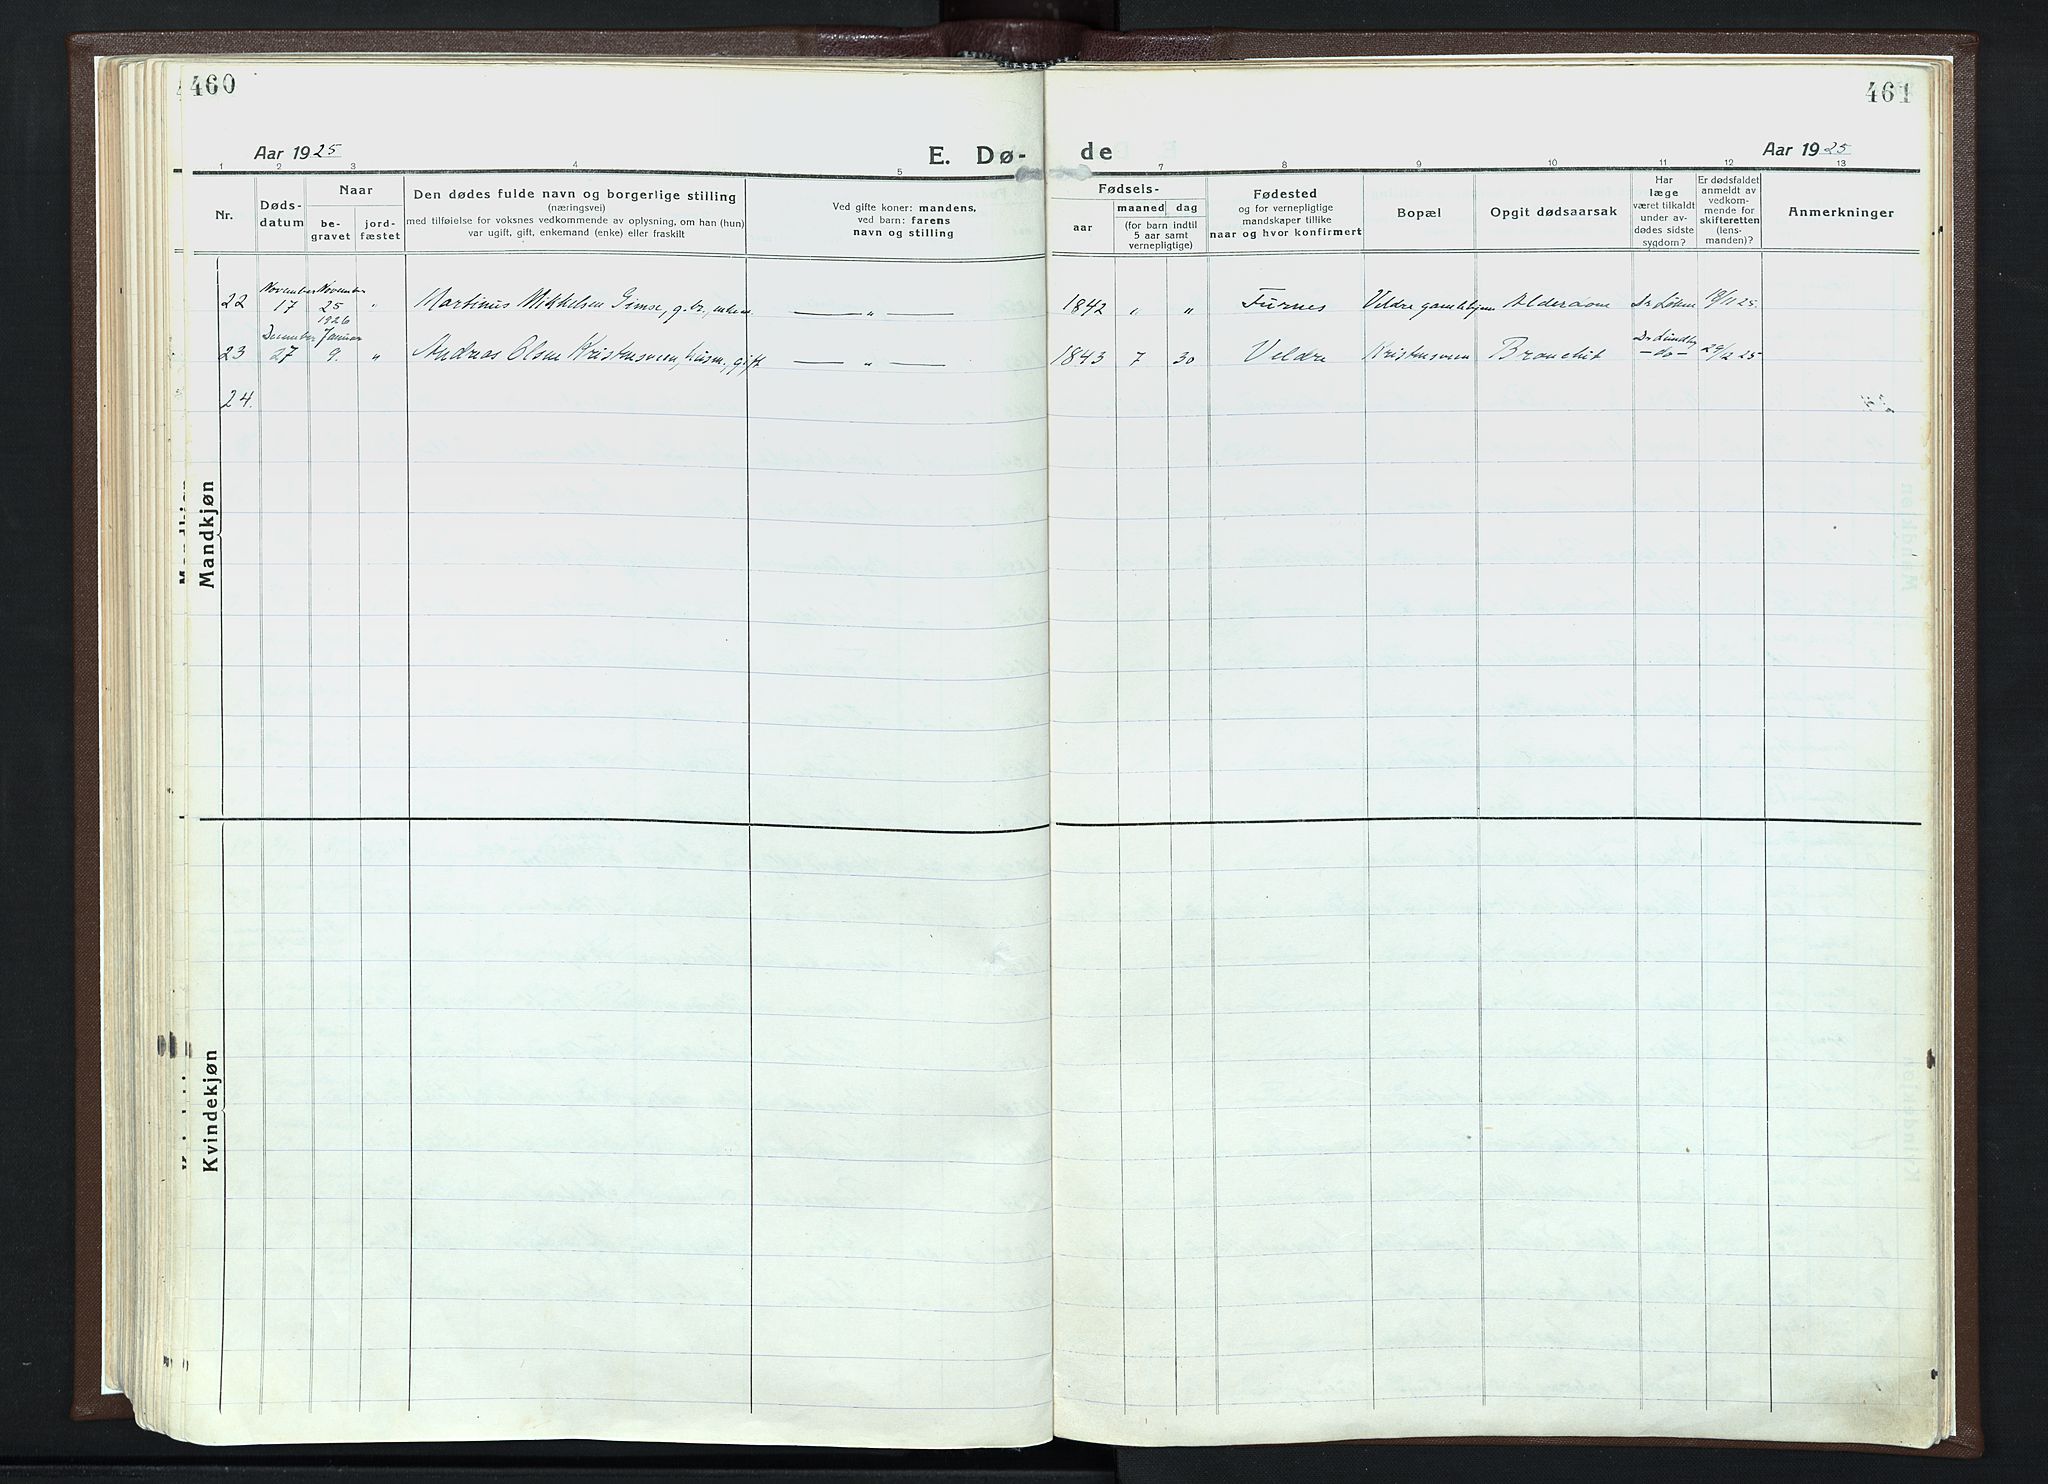 460
461
Aar 1925
E. Dø-
de
Aar 1925
1 2 3 4 5 7 8 9 10 11 12 13
Nr.
Døds-
datum
Naar
be-
gravet
jord-
fæstet
Den dødes fulde navn og borgerlige stilling
(næringsvei)
med tilføielse for voksnes vedkommende av oplysning, om han (hun)
var ugift, gift, enkemand (enke) eller fraskilt
Ved gifte koner: mandens,
ved barn: farens
navn og stilling
Fødsels-
aar
maaned dag
(for barn indtil
5 aar samt
vernepligtige)
Fødested
og for vernepligtige
mandskaper tillike
naar og hvor konfirmert
Bopæl
Opgit dødsaarsak
Har
læge
været tilkaldt
under av-
dødes sidste
sygdom?
Er dødsfaldet
anmeldt av
vedkom-
mende for
skifteretten
(lens-
manden)?
Anmerkninger
November November
22 17 25 " Martinus Mikkelsen Gimse, g.br., enkem. — " — 1842 " " Furnes Veldre gamlehjem Alderdom Dr Løken 18/11 25.
1926
December Januar
23 27 9. " Andreas Olsen Kristensveen, husm., gift — " — 1843 7 30 Veldre Kristensveen Bronchit Dr Lundby
-do- 29/12 25
24.
Mandkjøn
Kvindekjøn